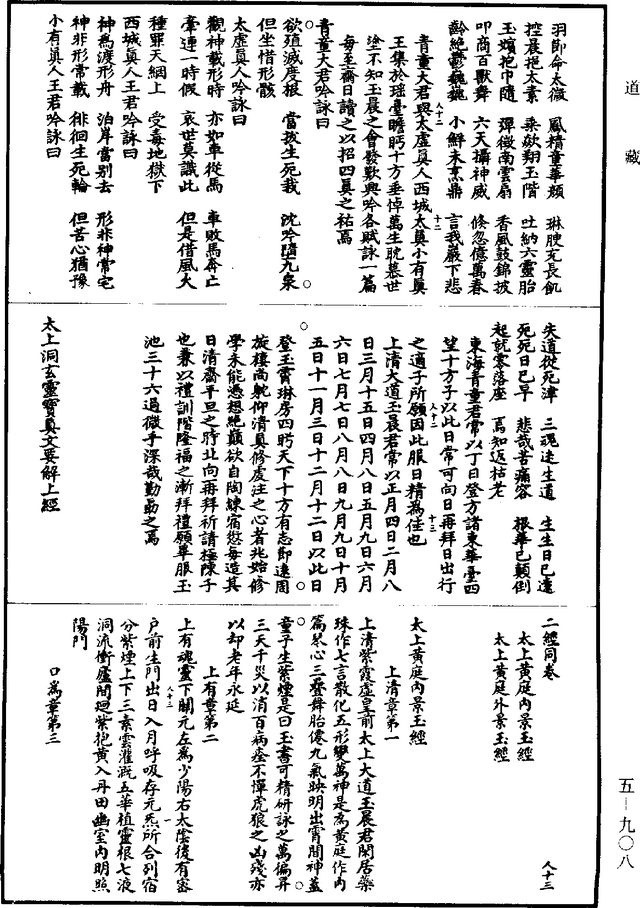 道藏
羽節命太微　風精童華頰　琳腴充長飢
控晨挹太素　乘欻翔玉階　吐納六靈胎
玉嬪抱巾隨　彈徵南雲扇　香風鼓錦披
叩商百獸舞　六天攝神威　倏忽億萬春
齡絕鬱巍巍　小鮮未烹鼎　言我巖下悲
青童大君與太虛真人西城太真小有真
王集於瑤臺瞻眄十方垂悼萬生眈慕世
塗不知玉晨之會發歎興吟各賦詠一篇
每至齋日讀之以招四真之祐焉
青童大君吟詠曰
欲殖滅度根　當拔生死栽　沈吟墮九泉
但坐惜形骸
太虛真人吟詠曰
觀神載形時　亦如車從馬　車敗馬奔亡
牽連一時假　哀世莫識此　但是惜風火
種罪天網上　受毒地獄下
西城真人王君吟詠曰
神為渡形舟　泊岸當別去　形非神常宅
神非形常載　徘徊生死輪　但苦心猶豫
小有真人王君吟詠曰
失道從死津　三魂迷生道　生生日已遠
死死日已早　悲哉苦痛容　根華已顛倒
起就零落座　焉知返枯老
東海青童君常以丁日登方諸東華臺四
望十方子以此日常可向日再拜日出行
之適子所願因此服日精為佳也
上清大道玉晨君常以正月四日二月八
日三月十五日四月八日五月九日六月
六日七月七日八月八日九月九日十月
五日十一月三日十二月十二日以此日
登玉霄琳房四眄天下十方有志節遠周
旋樓尚躭仰清真修處注之心者兆始修
學未能憑想絕巔欲自陶鍊宿愆每造其
日清齋平旦之時北向再拜祈請極陳子
也兼以禮訓階隆福之漸拜禮願畢服玉
池三十六過微手深哉勤勗之焉
太上洞玄靈寶真文要解上經
二經同卷　人十三
太上黃庭內景玉經
太上黃庭外景玉經
太上黃庭內景玉經
上清章第一
上清紫霞虛皇前太上大道玉晨君閑居蘂
珠作七言散化五形變萬神是為黃庭作內
篇琴心三疊舞胎僊九氣映明出霄間神蓋
童子生紫煙是曰玉書可精研詠之萬徧昇
三天千災以消百病痊不憚虎狼之凶殘亦
以却老年永延
上有章第二
上有魂靈下關元左為少陽右太陰後有密
戶前生門出日入月呼吸存元炁所合列宿
分紫煙上下三素雲灌溉五華植靈根七液
洞流衝廬間迴紫抱黃入丹田幽室內明照
陽門
口為章第三
五－九〇八